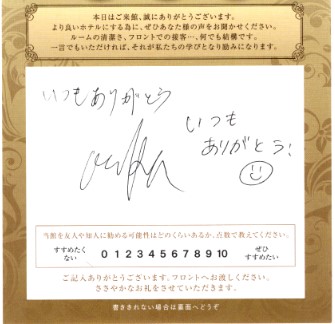 本日はご来館、誠にありがとうございます。
より良いホテルにする為に、ぜひあなた様の声をお聞かせください。
ルームの清潔さ、フロントでの接客…、何でも結構です。
一言でもいただければ、それが私たちの学びとなり励みになります。
いつもありがとう
いつも
ありがとう!
当館を友人や知人に勧める可能性はどのくらいあるか、点数で教えてください。
すすめたく
ない
0 1 2 3 4 5 6 7 8 9 10
ぜひ
すすめたい
ご記入ありがとうございます。フロントへお渡しください。
ささやかなお礼をさせていただきます。
書ききれない場合は裏面へどうぞ